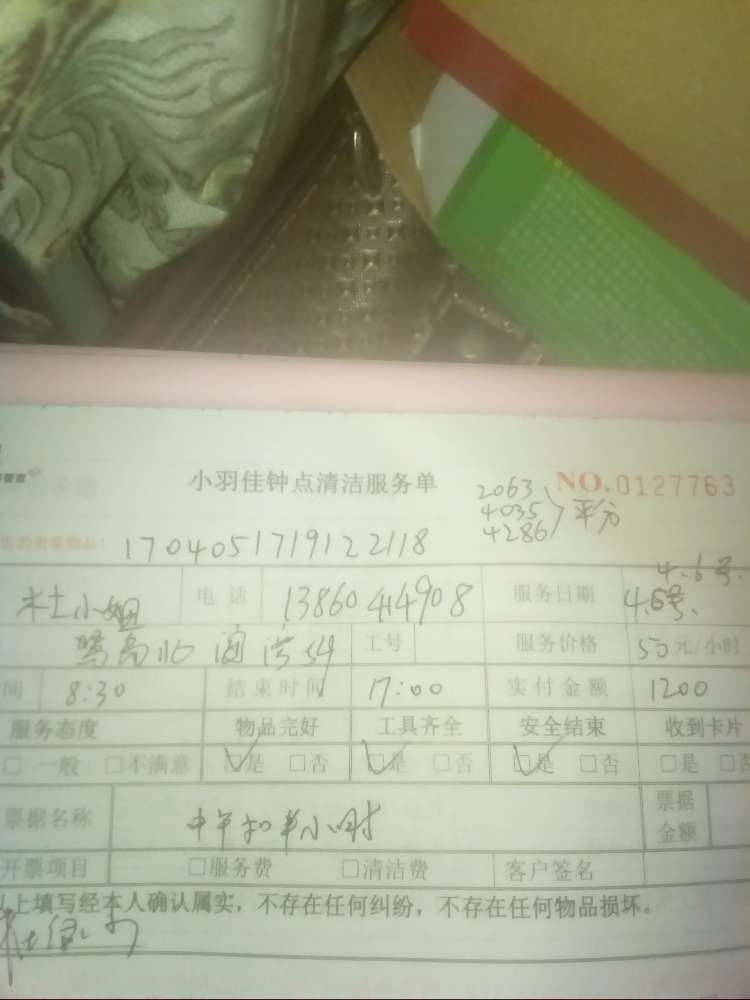 小羽佳钟点清洁服务单 NO.0127763
2063
4035 平分
4286
1704051719122118
4.6号.
杜小姐 电话 13860414908 服务日期 4.5号、
工号 服务价格 50元/小时
间 8:30 结束时间 17:00 实付金额 1200
服务态度 物品完好 工具齐全 安全结束 收到卡片
□一般 □不满意 ☑是 □否 ☑是 □否 ☑是 □否 □是 □否
票据名称 中午扣半小时 票据金额
开票项目 □服务费 □清洁费 客户签名
以上填写经本人确认属实，不存在任何纠纷，不存在任何物品损坏。